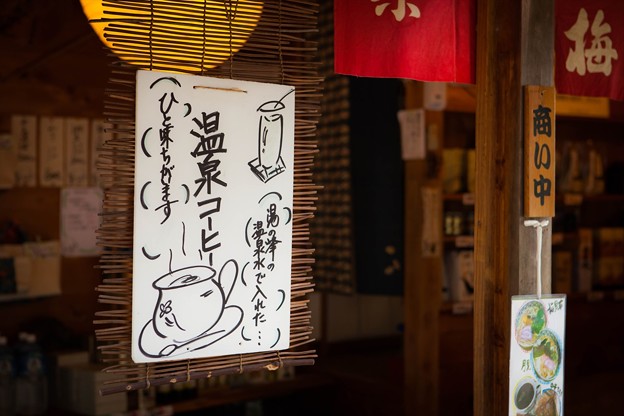 湯の峯の
温泉水で入れた…
温泉コーヒー
ひと味ちがます
梅
商い中